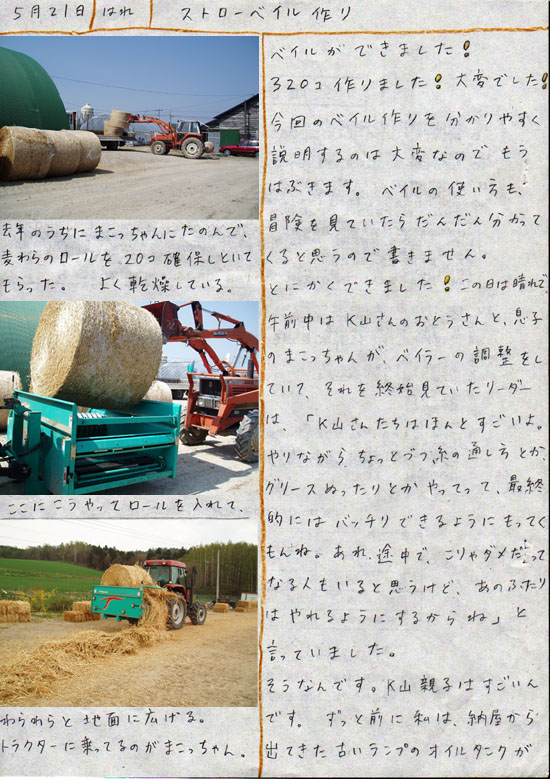 5月21日 はれ ストローベイル作り
去年のうちにまこっちゃんにたのんで、
麦わらのロールを20コ確保しといて
もらった。 よく乾燥している。
ここにこうやってロールを入れて、
わらわらと地面に広げる。
トラクターに乗ってるのがまこっちゃん。
ベイルができました!
320コ作りました! 大変でした!
今回のベイル作りを分かりやすく
説明するのは大変なのでもう
はぶきます。 ベイルの使い方も、
冒険を見ていたらだんだん分かって
くると思うので書きません。
とにかくできました! この日は晴れで、
午前中はK山さんのおとうさんと、息子
のまこっちゃんが、ベイラーの調整をし
ていて、それを終始見ていたリーダー
は、「K山さんたちはほんとすごいよ。
やりながら、ちょっとづつ、糸の通し方とか、
グリースぬったりとかやってって、最終
的にはバッチリできるようにもってく
もんね。あれ、途中で、こりゃダメだって
なる人もいると思うけど、あのふたり
はやれるようにするからね」と
言っていました。
そうなんです。K山親子はすごいん
です。 ずっと前に私は、納屋から
出てきた古いランプのオイルタンクが